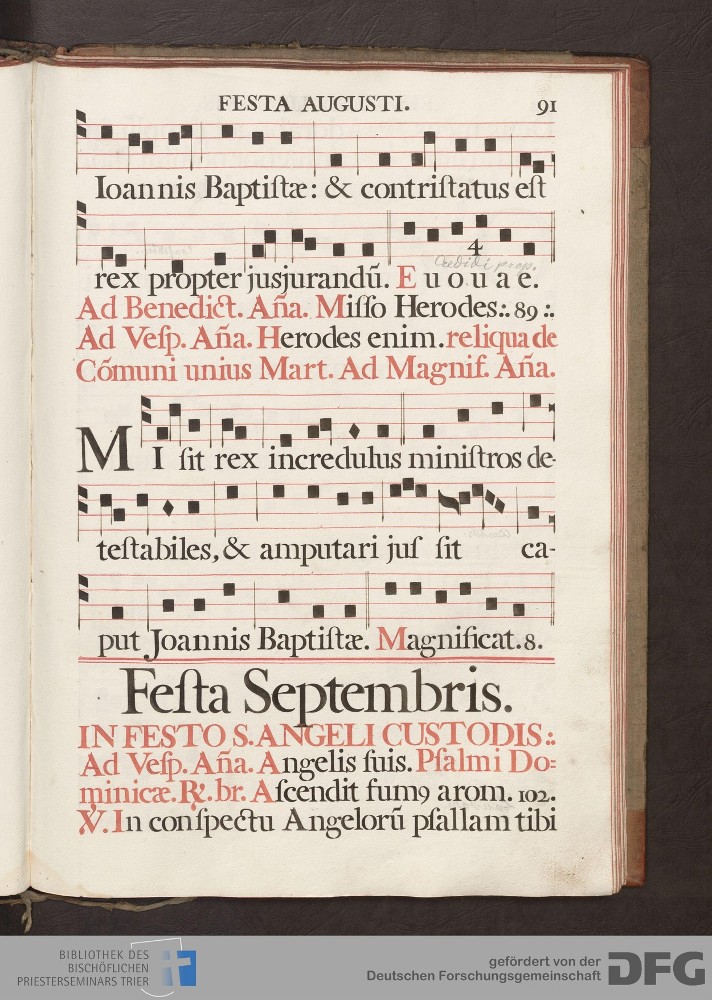 FESTA AUGUSTI. 91
Ioannis Baptiſtæ: & contriſtatus eſt
4
Credidi prop.
rex propter jusjurandū. E u o u a e.
Ad Benedict. Aña. Miſſo Herodes:. 89 :.
Ad Veſp. Aña. Herodes enim. reliqua de
Cōmuni unius Mart. Ad Magnif. Aña.
MI ſit rex incredulus miniſtros de-
teſtabiles, & amputari juſ ſit ca-
put Joannis Baptiſtæ. Magnificat. 8.
Feſta Septembris.
IN FESTO S. ANGELI CUSTODIS :.
Ad Veſp. Aña. Angelis ſuis. Pſalmi Do=
minicæ. R℣. br. Aſcendit fumꝰ arom. 102.
℣. In conſpectu Angelorū pſallam tibi
BIBLIOTHEK DES
BISCHÖFLICHEN
PRIESTERSEMINARS TRIER
gefördert von der
Deutschen Forschungsgemeinschaft DFG